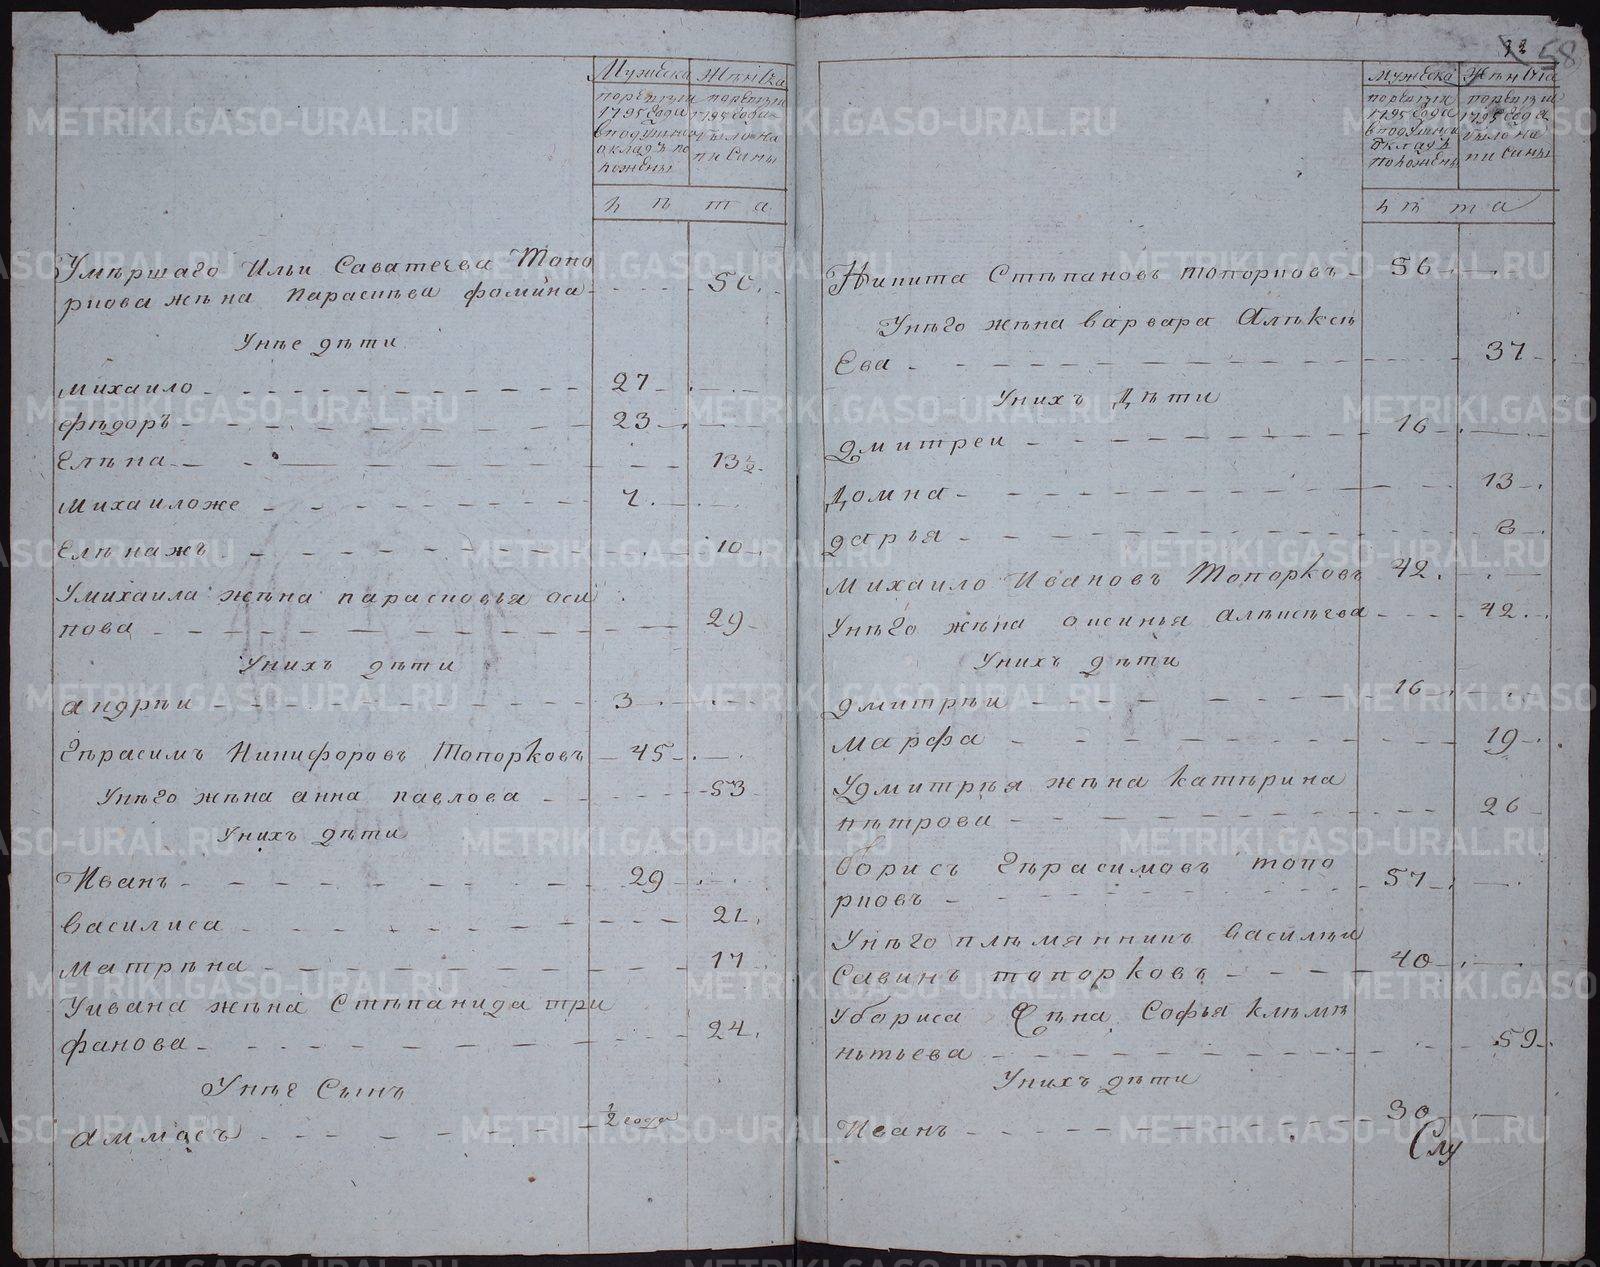 Мужеска
Женска
поревизіи
1795 года
вподушномъ
окладѣ по
ложены
поревизіи
1795 года
было на
писаны
лѣта
Умѣршаго Ильи Саватеева Топо
ркова жѣна Параскѣва фомина 50.
Унѣе дѣти
михаило 27
фѣдоръ 23
Елѣна 13 1/2
михаиложе 7.
Елѣнажъ 10
Умихаила жѣна парасковья оси
пова 29
Унихъ дѣти
андрѣи 3
Гѣрасимъ Никифоровъ Топорковъ 45
Унѣго жѣна анна павлова 53
Унихъ дѣти
Иванъ 29
василиса 21
матрѣна 17
Уивана жѣна Стѣпанида три
фанова 24
Унѣе Сынъ
аммосъ 1/2 года
58
Мужеска
Женска
поревизіи
1795 года
вподушномъ
окладѣ
положены
поревизіи
1795 года
было на
писаны
лѣта
Никита Стѣпановъ топорковъ 56
Унѣго жѣна варвара Алѣксѣ
Ева 37
Унихъ Дѣти
дмитреи 16
Домна 13
дарья 8
михаило Ивановъ Топорковъ 42
Унѣго жѣна оксинья алѣксѣева 42
Унихъ дѣти
дмитрѣи 16
марфа 19
Удмитрѣя жѣна катѣрина
пѣтрова 26
борисъ Гѣрасимовъ топо
рковъ 57
Унѣго плѣмянникъ василѣи
Савинъ топорковъ 40
Убориса жѣна Софья клѣмѣ
нтьева 59
Унихъ дѣти
Иванъ 30
Слу
METRIKI.GASO-URAL.RU